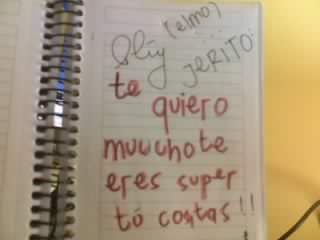 (elmo)
JERITO
te
quiero
muuuchote
eres super
tó cortas!!